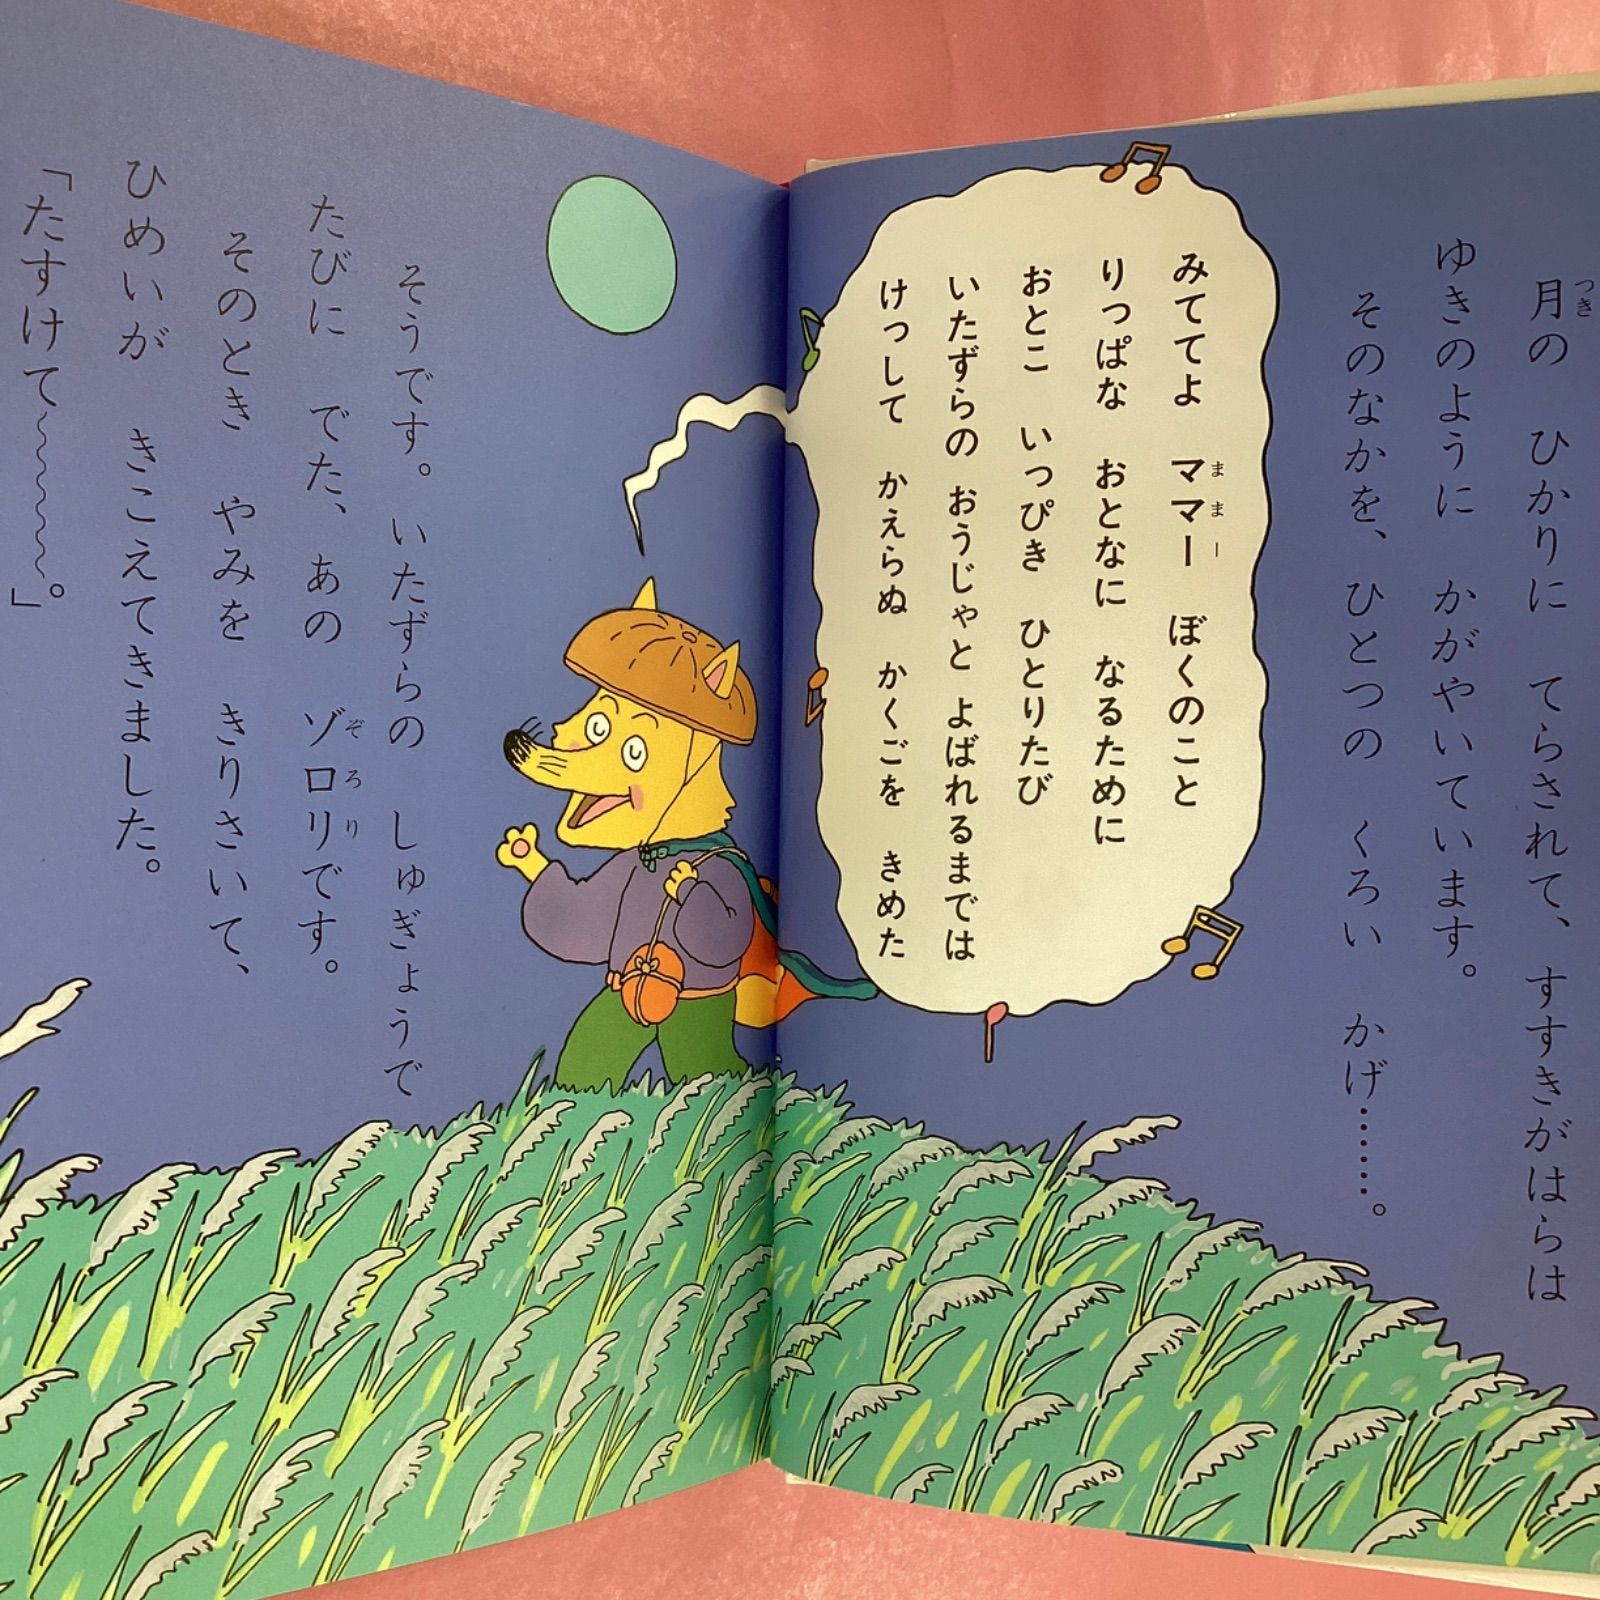 月の　ひかりに　てらされて、すすきがはらは
ゆきのように　かがやいています。
そのなかを、ひとつの　くろい　かげ……。
みててよ　ママー　ぼくのこと
りっぱな　おとなに　なるために
おとこ　いっぴき　ひとりたび
いたずらの　おうじゃと　よばれるまでは
けっして　かえらぬ　かくごを　きめた
そうです。いたずらの　しゅぎょうで
たびに　でた、あの　ゾロリです。
そのとき　やみを　きりさいて、
ひめいが　きこえてきました。
「たすけて〜〜〜〜。」